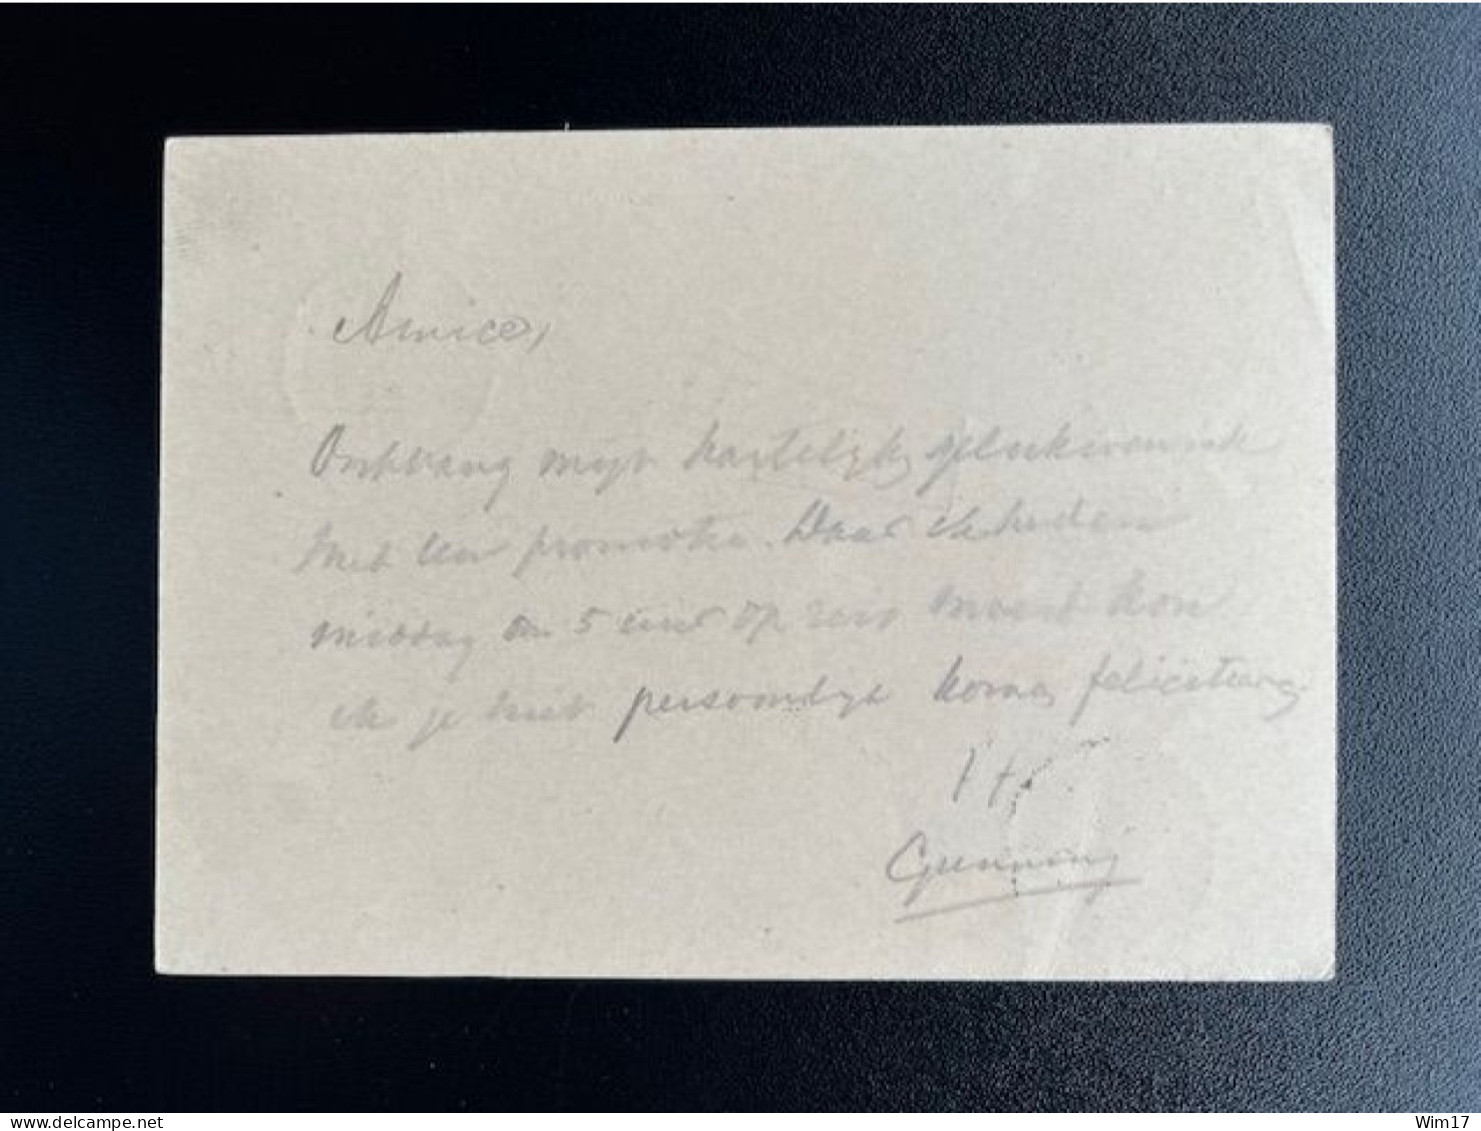 Amice,
Ontvang mijn hartelijk gelukwensch
met uw promotie. Daar ik heden
middag om 5 uur op reis moest kon
ik je niet persoonlijk komen feliciteeren
Gunning
delcampe.net
Wim17